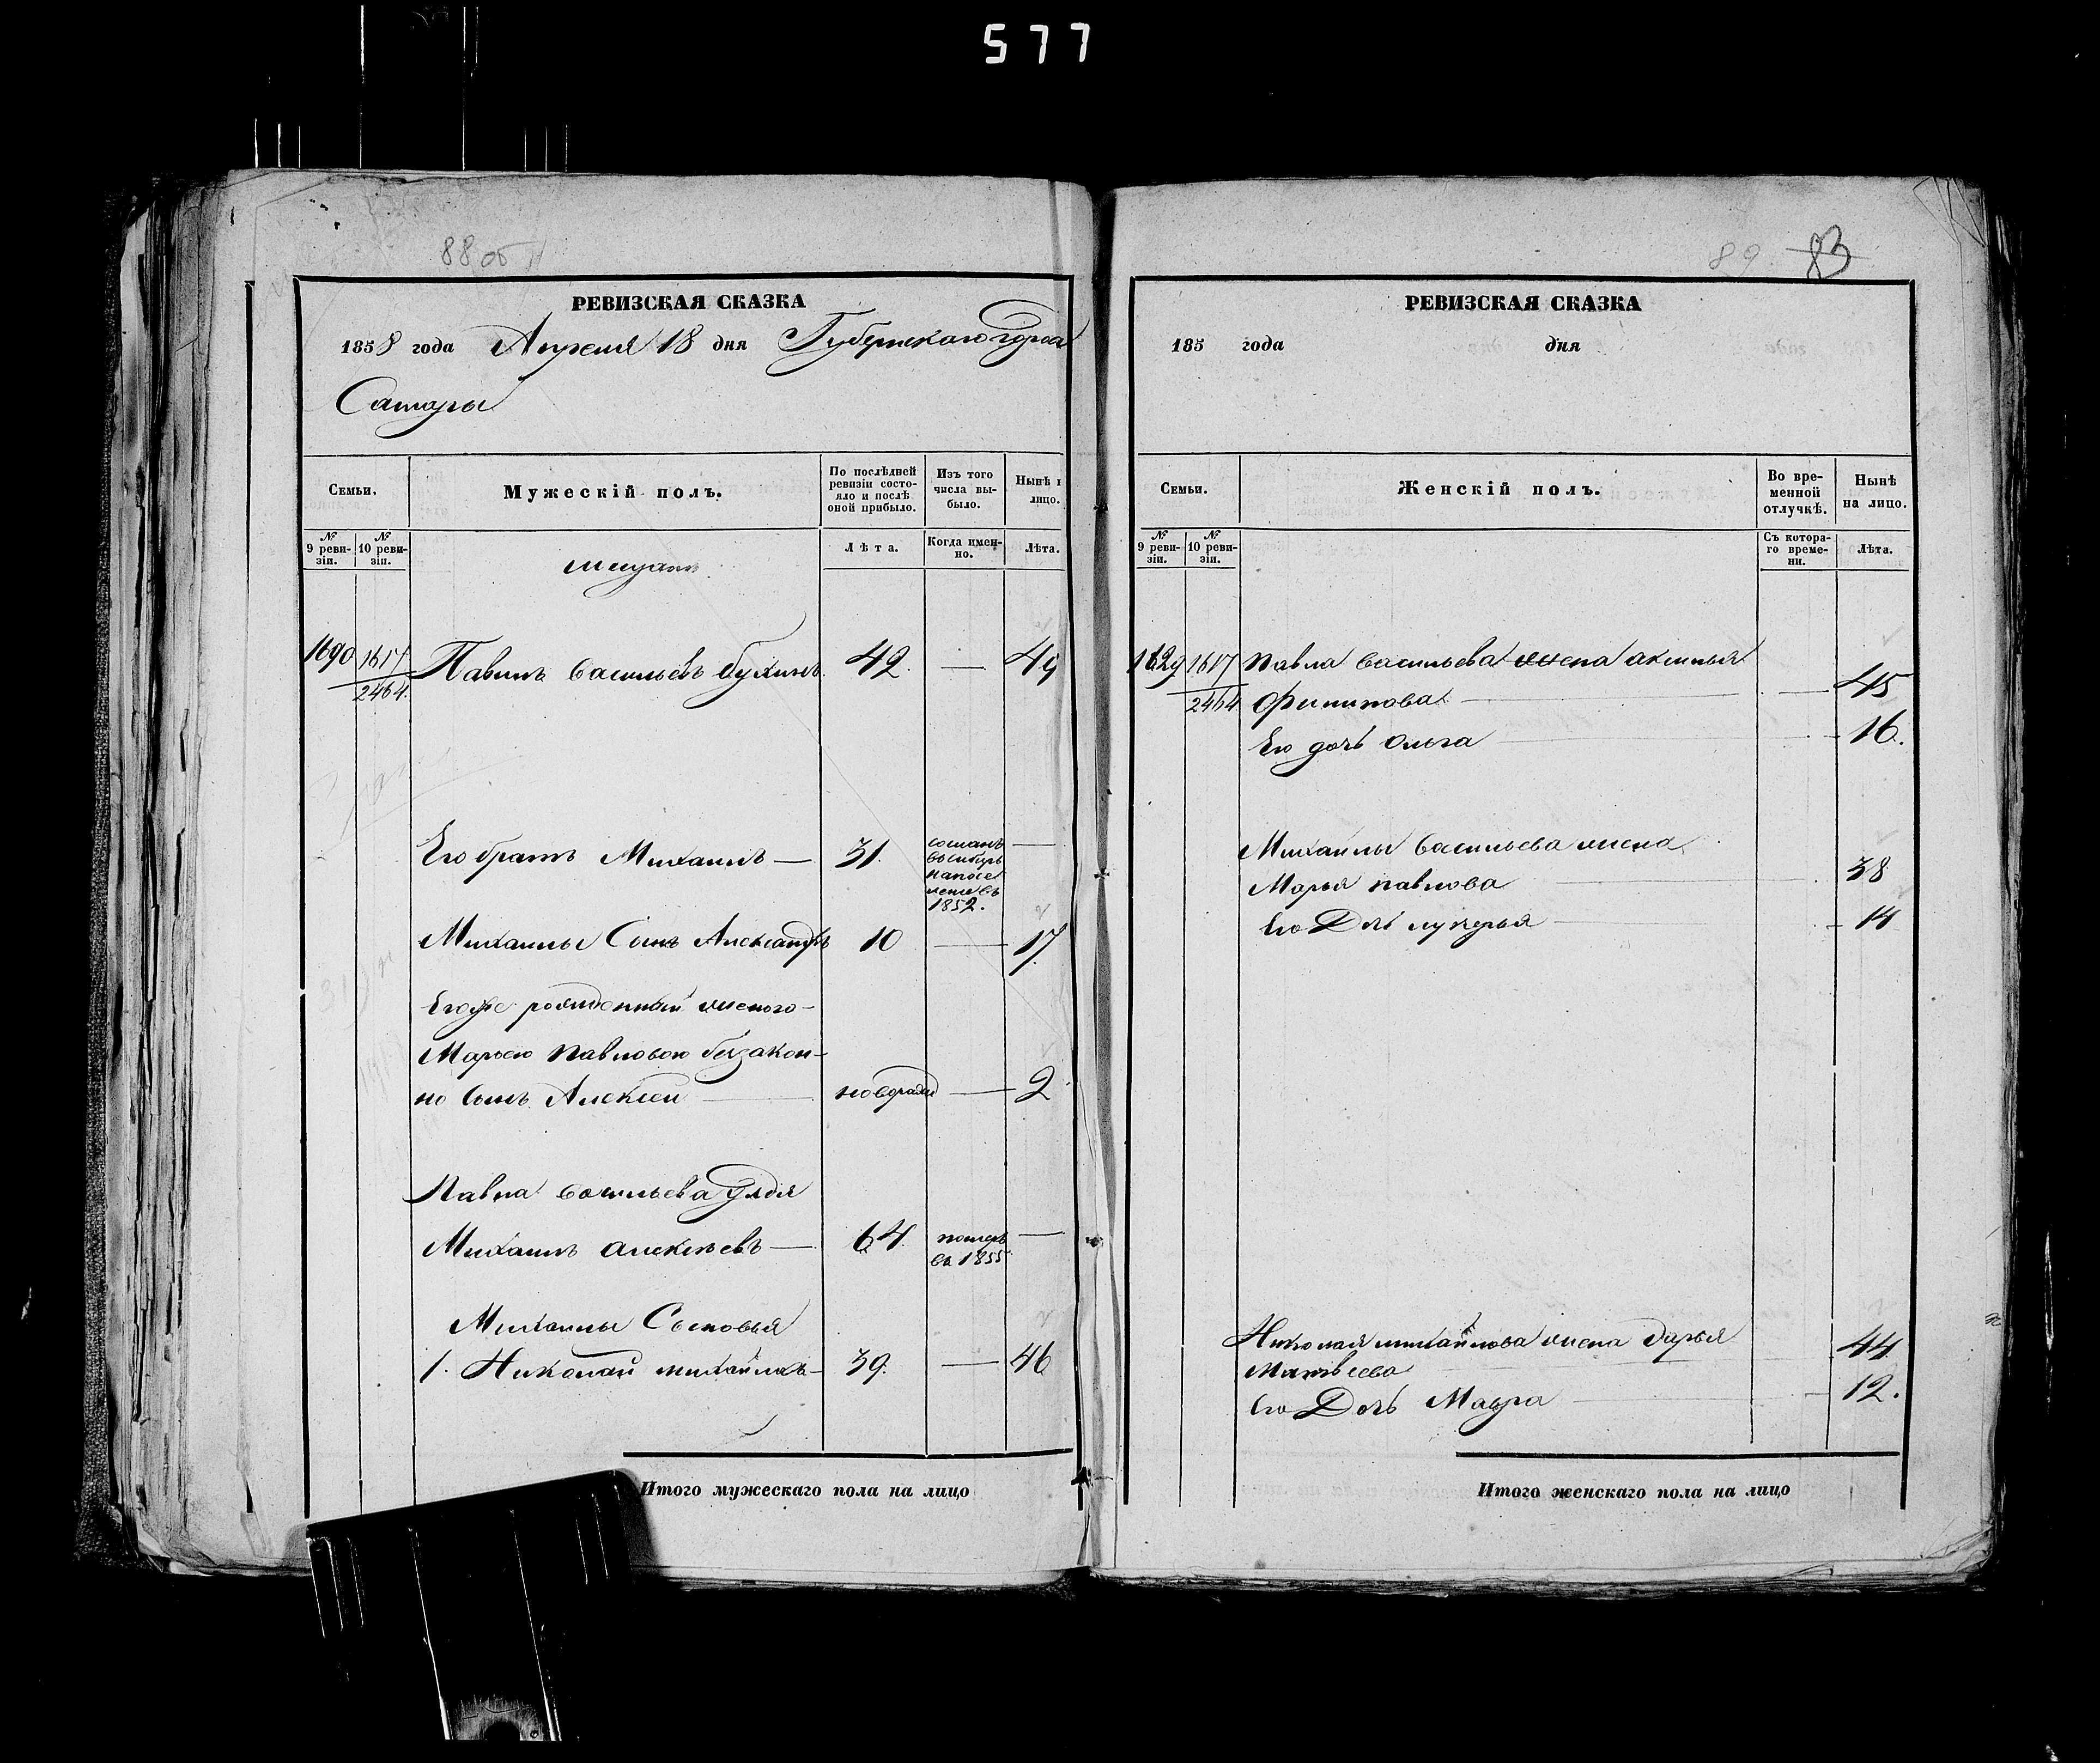 577
88 об
РЕВИЗСКАЯ СКАЗКА
1858 года Апреля 18 дня Губернскаго города
Самары
Семьи.
Мужескій полъ.
По послѣдней ревизіи состояло и послѣ оной прибыло.
Изъ того числа выбыло.
Нынѣ н лицо.
№ 9 ревизіи.
№ 10 ревизіи.
Лѣта.
Когда именно.
Лѣта.
мещане
1690 1617 Павилъ Васильевъ 42. — 49
2464.
Его братъ Михаилъ — 31. сосланъ —
в сибирь
на посе
ление въ
1852.
Михаилы Сынъ Александръ 10 — 17
Егоже рожденный женою
Марьею Павловою безакон-
но Сынъ Алексей — — 2
Павла Васильева Дядя
Михаилъ Алексѣевъ — 64. померъ —
въ 1855
Михаилы Сыновья
1. Николай михайловъ — 39. — 46
Итого мужескаго пола на лицо
89 83
РЕВИЗСКАЯ СКАЗКА
185 года дня
Семьи.
Женскій полъ.
Во временной отлучкѣ.
Нынѣ на лицо.
№ 9 ревизіи.
№ 10 ревизіи.
Съ котораго времени.
Лѣта.
1617 Павла Васильева жена аксинья
2464 Филипова — — 45
Его дочь Ольга — 16.
Михаилы Васильева жена
Марья павлова — 38
Его Дочь лукерья — 14
Николая михайлова жена Дарья 44
Матвѣева
Его Дочь Мавра — 12.
Итого женскаго пола на лицо